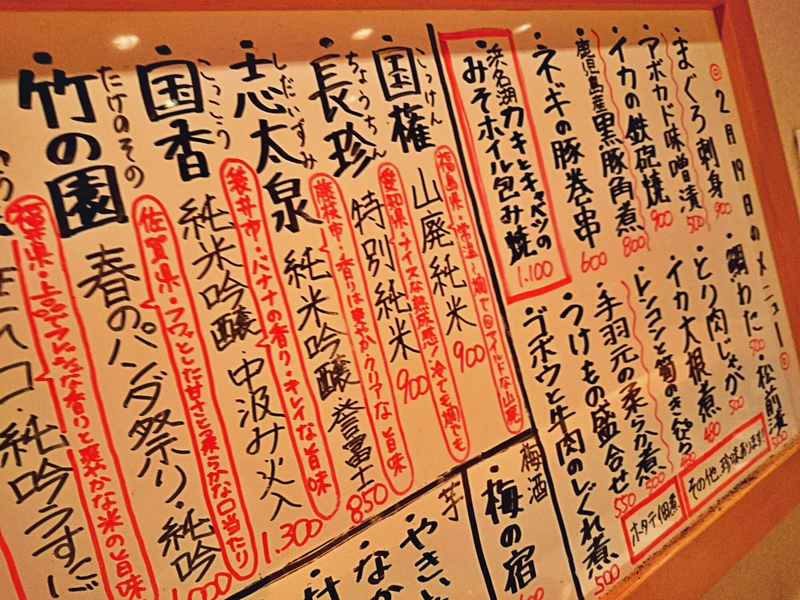 ◎2月19日のメニュー◎
・まぐろ刺身 900
アボカド味噌漬 500
・イカの鉄砲焼 900
鹿児島産黒豚角煮 800
・ネギの豚巻串 600
浜名湖カキとキャベツの
みそホイル包み焼 1.100
・鯛わた 500
・松前漬 500
・とり肉じゃが 500
・イカ大根煮 480
・レンコンと筍のきんぴら 480
・手羽元の柔らか煮 500
・つけもの盛合せ 550
・ゴボウと牛肉のしぐれ煮 500
その他、珍味あります!
ホタテ佃煮
こっけん
・国権 山廃純米 900
福島県・常温〜燗で◎マイルドな山廃
ちょうちん
・長珍 特別純米 900
愛知県・ナイスな熟成感!冷でも燗でも
しだいずみ
・志太泉 純米吟醸 誉富士 850
藤枝市・香りは爽やか・クリアな旨味
こっこう
・国香 純米吟醸・中汲み火入 1.300
袋井市・バナナの香り・キレイな旨味
たけのその
・竹の園 春のパンダ祭り・純吟
佐賀県・フワッとした甘さと柔らかな口当たり
純吟うすに
梅酒
・梅の宿
芋
・やき
・なか